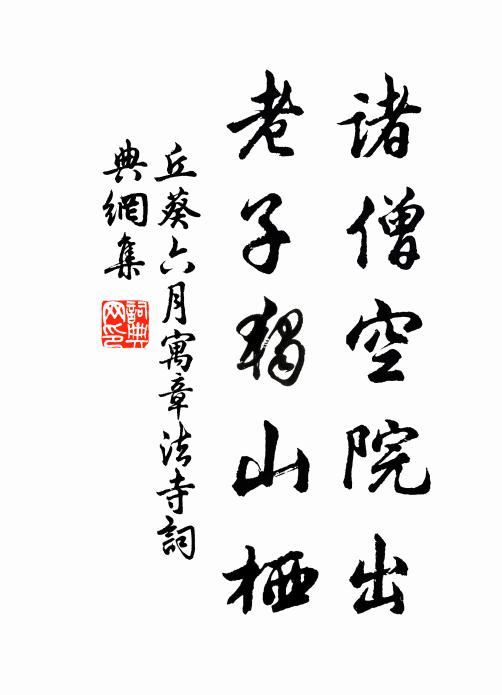 诸僧空院出
老子独山栖
丘葵六月寓章法寺詞
典網集
詞典网印